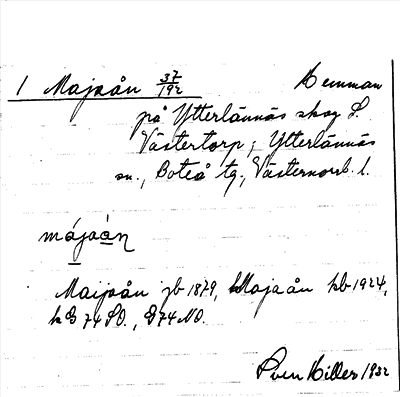 1 Majaån 37/192 Hemman
på Ytterlännäs skog S.
Västertorp, Ytterlännäs
sn., Boteå tg., Västernorrl. l.
májaàn
Maijaån jb 1879, Majaån kb 1924,
k G 74 SO., G 74 NO.
Sven Hillers 1932